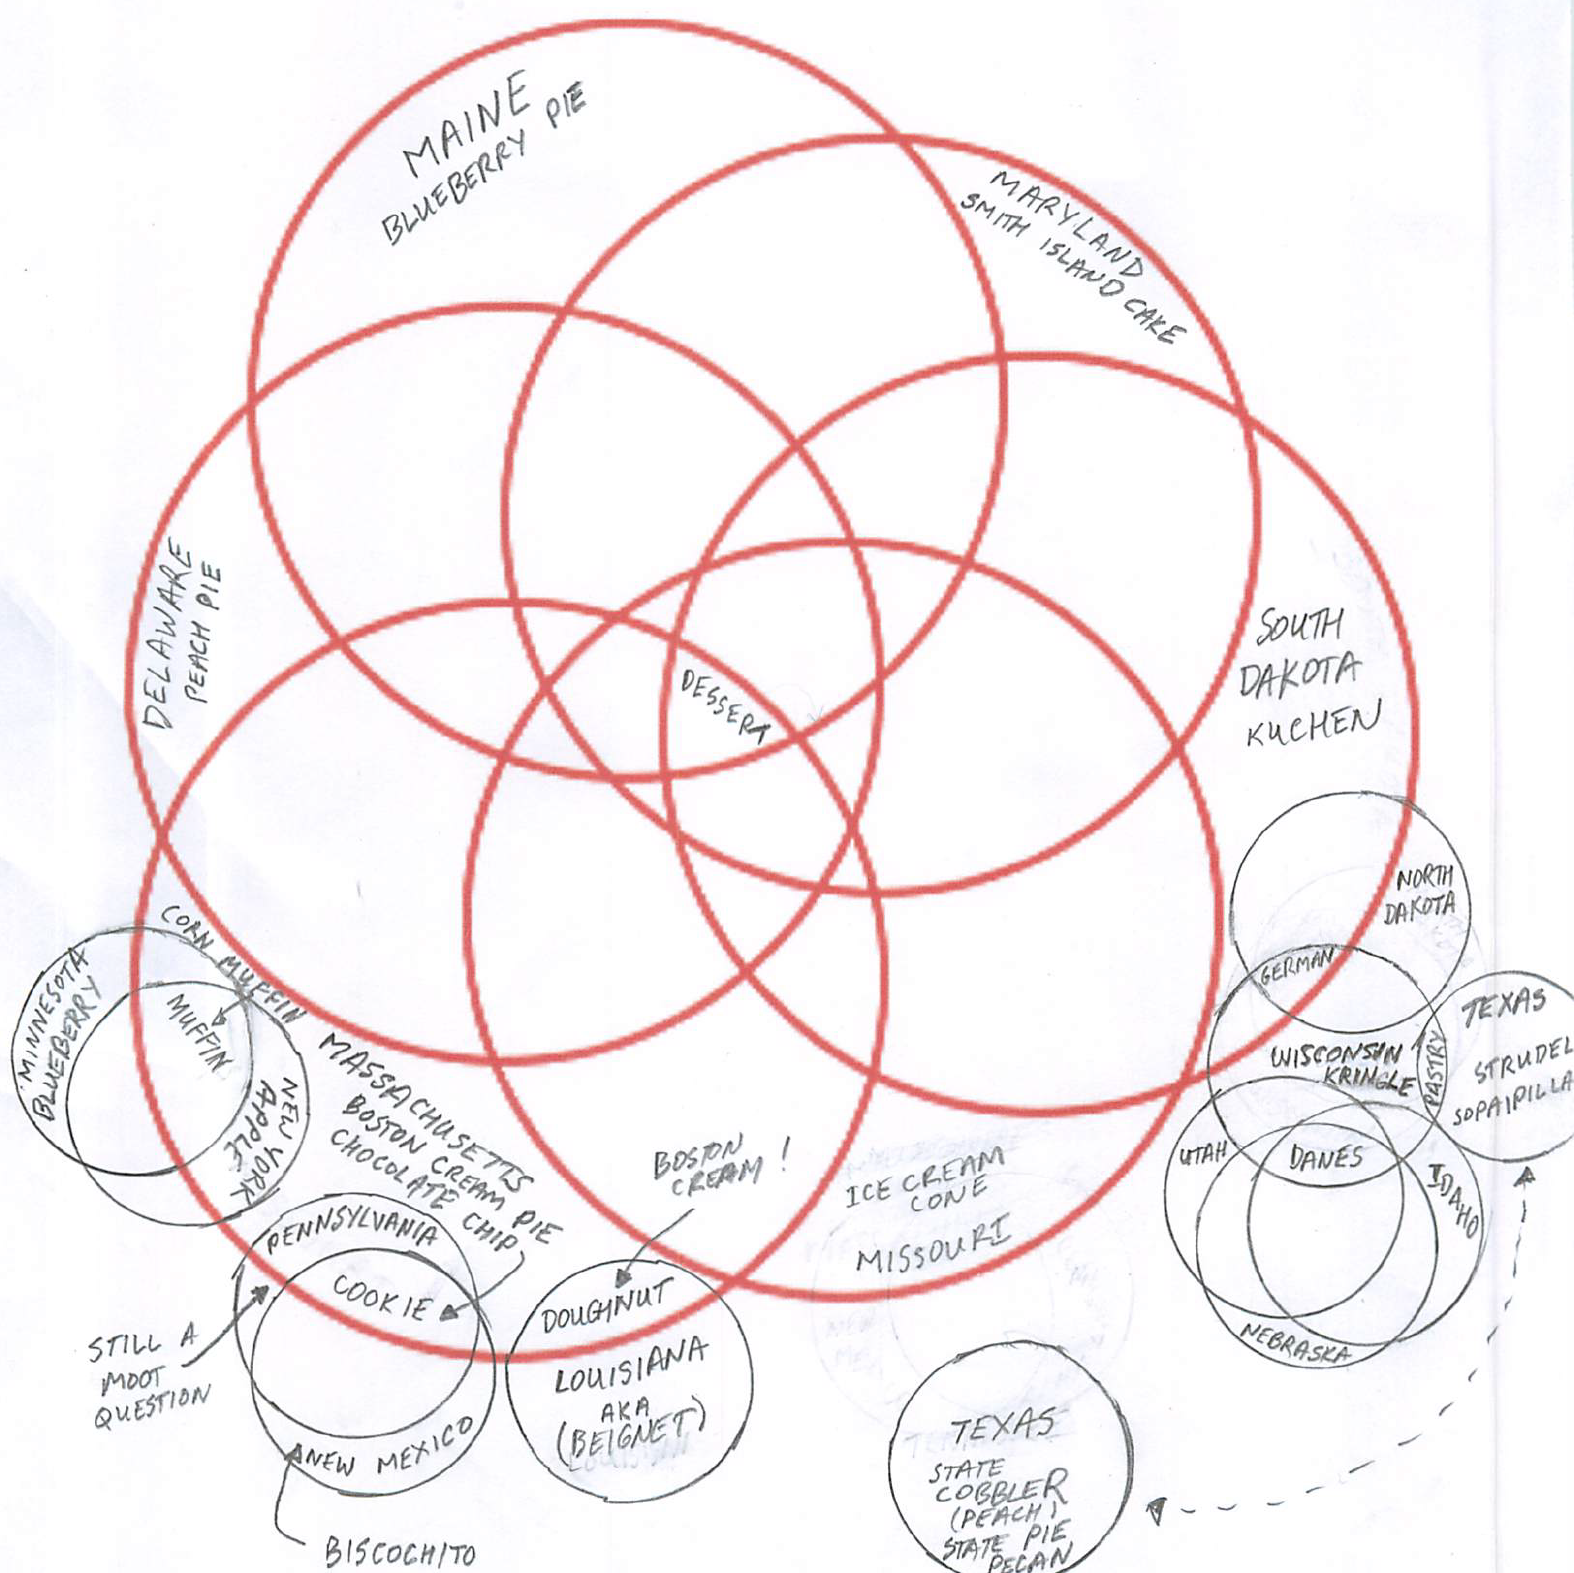 MAINE
BLUEBERRY PIE
MARYLAND
SMITH ISLAND CAKE
DELAWARE
PEACH PIE
SOUTH
DAKOTA
KUCHEN
DESSERT
NORTH
DAKOTA
GERMAN
WISCONSIN
KRINGLE
PASTRY
TEXAS
STRUDEL
SOPAIPILLA
UTAH
DANES
IDAHO
NEBRASKA
CORN MUFFIN
MINNESOTA
BLUEBERRY
MUFFIN
NEW YORK
APPLE
MASSACHUSETTS
BOSTON CREAM PIE
CHOCOLATE CHIP
BOSTON
CREAM !
ICE CREAM
CONE
MISSOURI
PENNSYLVANIA
COOKIE
STILL A
MOOT
QUESTION
NEW MEXICO
BISCOCHITO
DOUGHNUT
LOUISIANA
AKA
(BEIGNET)
TEXAS
STATE
COBBLER
(PEACH)
STATE PIE
PECAN